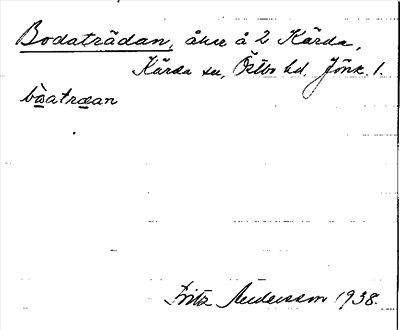 Bodaträdan, åker å 2 Kärda,
Kärda sn, Östbo hd. Jönk. l.
bo̲atræ̲an
Fritz Andersson 1938.